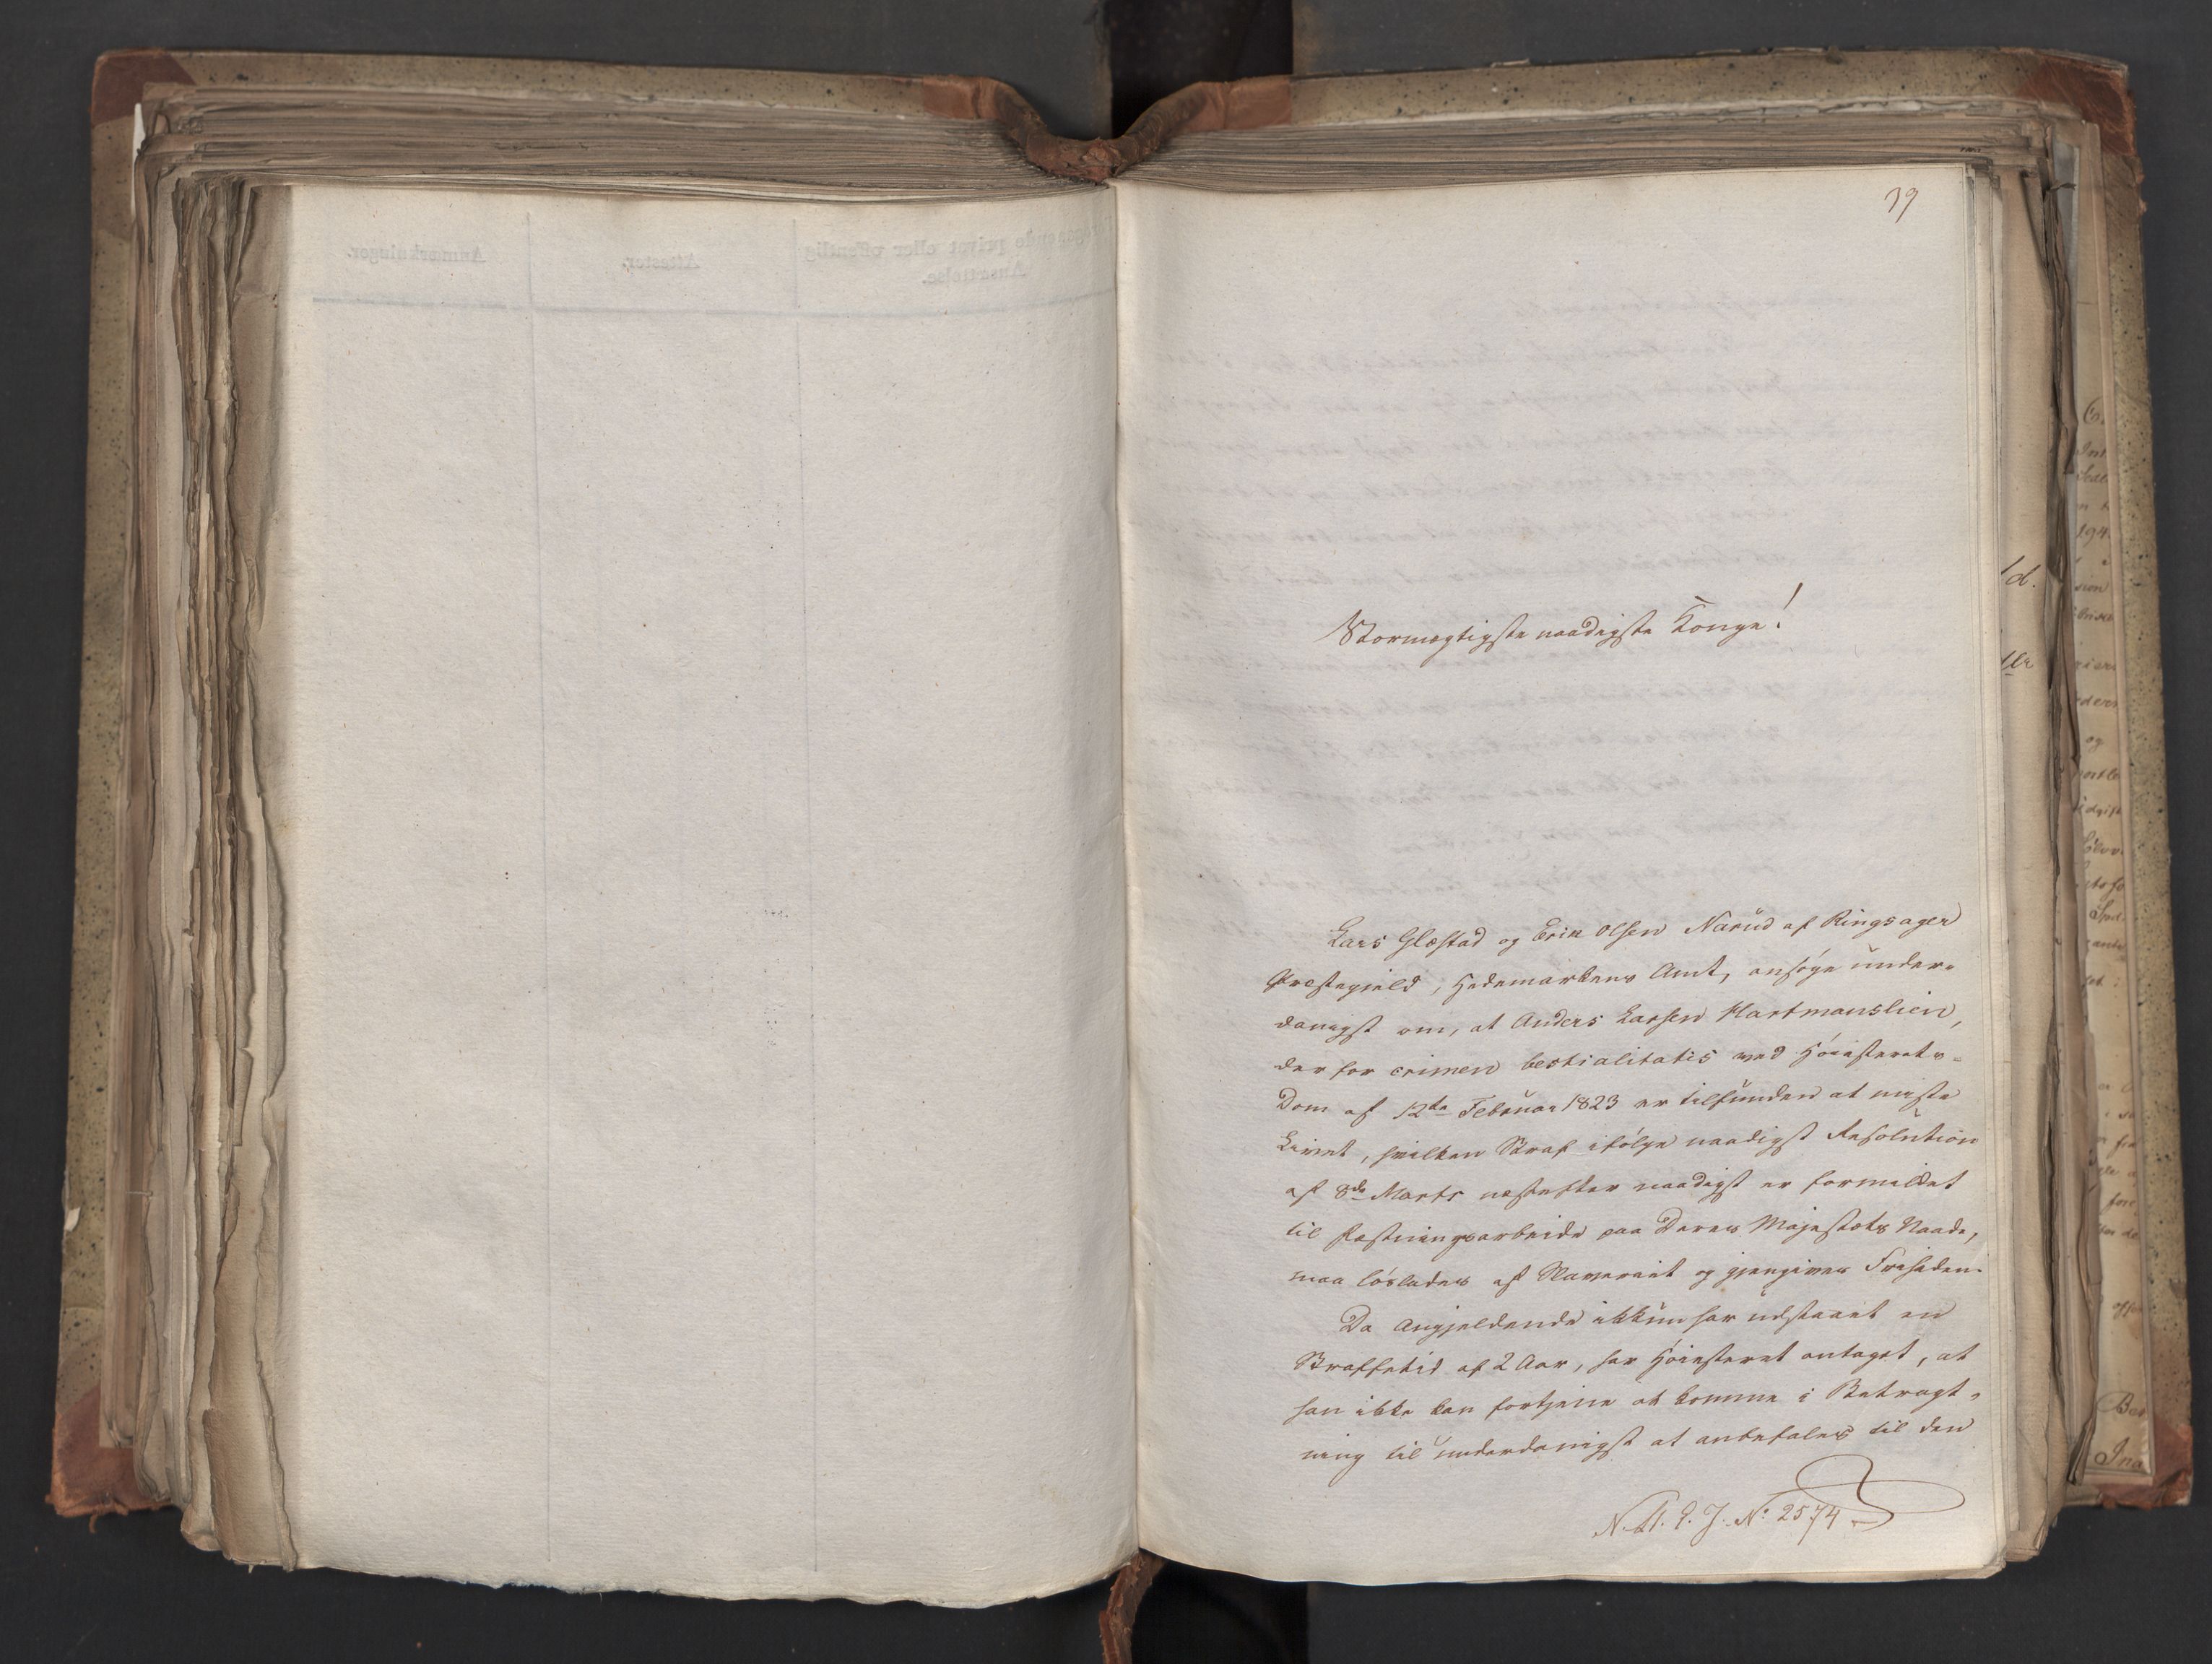 39
Stormægtigste naadigste Konge!
Lars Glæstad og Erik Olsen Narud af Ringsager
Præstegjeld, Hedemarkens Amt, ansøge under-
danigst om, at Anders Larsen Hartmanslien,
der for crimen bestialitatis ved Høiesterets-
Dom af 12te Februar 1823 er tilfunden at miste
Livet, hvilken Straf ifølge naadigst Resolution
af 8de Marts næstefter naadigst er formildet
til Fæstningsarbeide paa Deres Majestæts Naade,
maa løslades af Slaveriet og gjengives Friheden.
Da Angjeldende ikkun har udstaaet en
Straffetid af 2 Aar, har Høiesteret antaget, at
han ikke kan fortjene at komme i Betragt-
ning til underdanigst at anbefales til den
N. A. P. J. No 2574